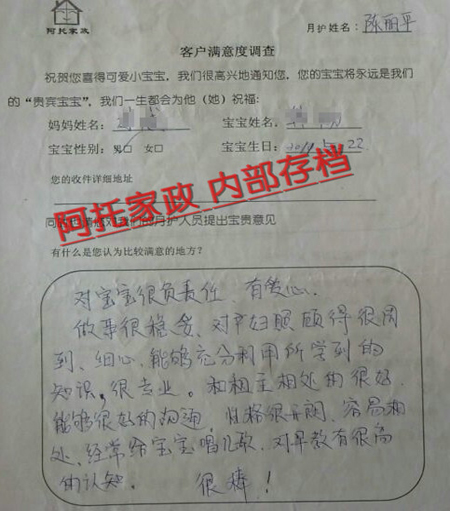 阿托家政
月护姓名：陈丽平
客户满意度调查
祝贺您喜得可爱小宝宝，我们很高兴地通知您，您的宝宝将永远是我们
的“贵宾宝宝”，我们一生都会为他（她）祝福：
妈妈姓名： 宝宝姓名：
宝宝性别：男□ 女□ 宝宝生日：
您的收件详细地址
阿托家政 内部存档
月护人员提出宝贵意见
有什么是您认为比较满意的地方？
对宝宝很负责任、有爱心、
做事很稳妥、对产妇照顾得很周
到、细心、能够充分利用所学到的
知识，很专业。和雇主相处的很好，
能够很好的沟通，性格很开朗、容易相
处、经常给宝宝唱儿歌、对早教有很高
的认知。 很棒！